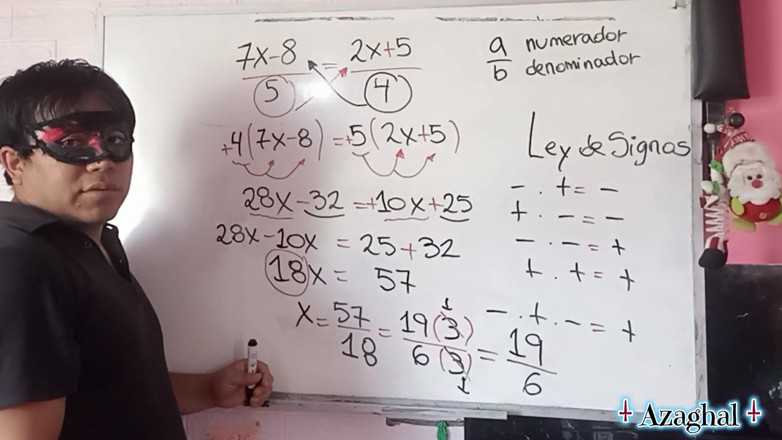 7x-8 / 5 = 2x+5 / 4
a numerador
b denominador
+4(7x-8) = +5(2x+5)
Ley de Signos
28x-32 = +10x+25
28x-10x = 25+32
18x = 57
x = 57/18 = 19(3)/6(3) = 19/6
- . + = -
+ . - = -
- . - = +
+ . + = +
- . + . - = +
Azaghal